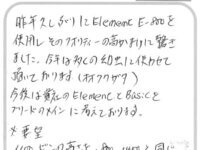 昨年久しぶりにElement E-800を
使用しそのクオリティーの高かさに驚き
ました。今年は多くの幼虫に使わせて
頂いております。(オオクワガタ)
今後は貴社のElementとBasicを
ブリードのメインに考えております。
*要望